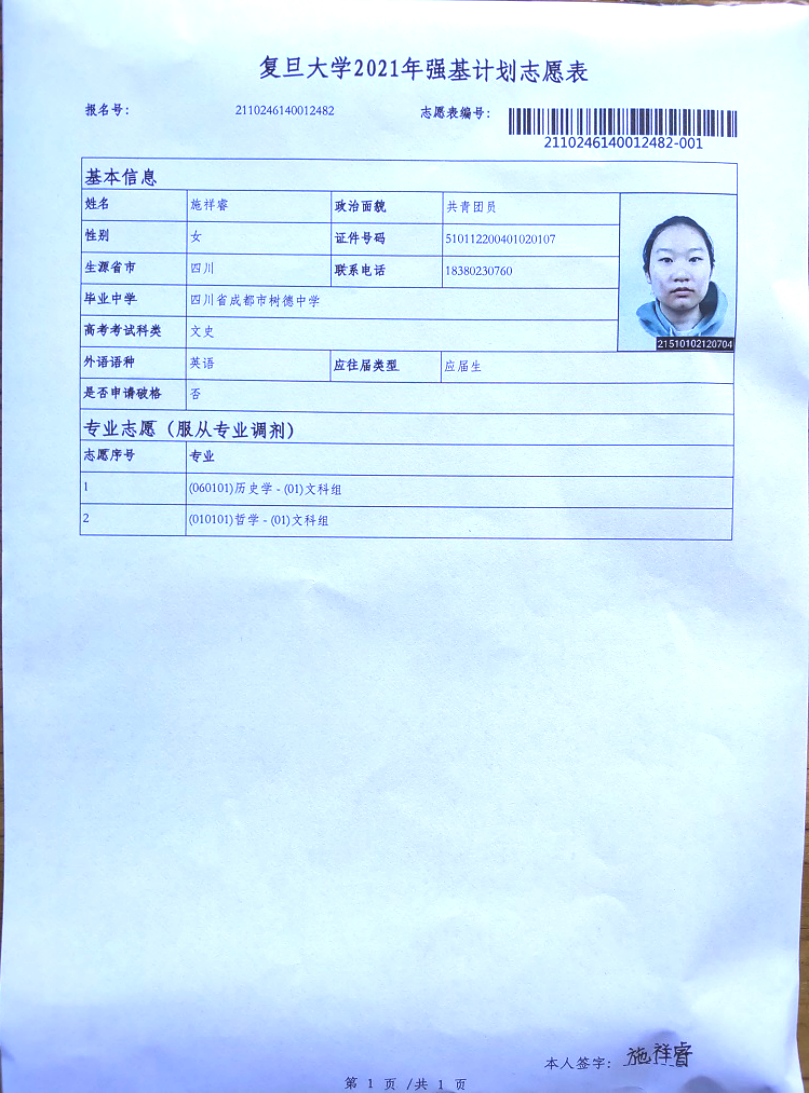 复旦大学2021年强基计划志愿表
报名号： 2110246140012482 志愿表编号：
2110246140012482-001
基本信息
姓名 施祥睿 政治面貌 共青团员
性别 女 证件号码 510112200401020107
生源省市 四川 联系电话 18380230760
毕业中学 四川省成都市树德中学
高考考试科类 文史
21510102120704
外语语种 英语 应往届类型 应届生
是否申请破格 否
专业志愿（服从专业调剂）
志愿序号 专业
1 (060101)历史学 - (01)文科组
2 (010101)哲学 - (01)文科组
本人签字： 施祥睿
第 1 页 /共 1 页